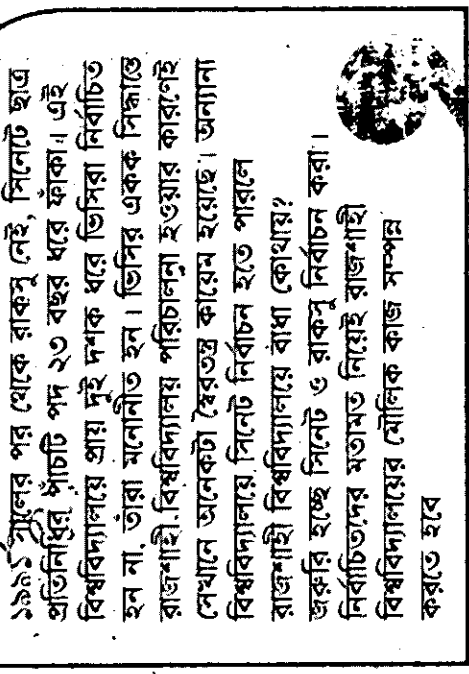 ১৯৯১ সালের পর থেকে রাকসু নেই, সিনেটে ছাত্র
প্রতিনিধির পাঁচটি পদ ২৩ বছর ধরে ফাঁকা। এই
বিশ্ববিদ্যালয়ে প্রায় দুই দশক ধরে ভিসিরা নির্বাচিত
হন না, তাঁরা মনোনীত হন। ভিসির একক সিদ্ধান্তে
রাজশাহী বিশ্ববিদ্যালয় পরিচালনা হওয়ার কারণেই
সেখানে অনেকটা স্বৈরতন্ত্র কায়েম হয়েছে। অন্যান্য
বিশ্ববিদ্যালয়ে সিনেট নির্বাচন হতে পারলে
রাজশাহী বিশ্ববিদ্যালয়ে বাধা কোথায়?
জরুরি হচ্ছে সিনেট ও রাকসু নির্বাচন করা।
নির্বাচিতদের মতামত নিয়েই রাজশাহী
বিশ্ববিদ্যালয়ের মৌলিক কাজ সম্পন্ন
করতে হবে